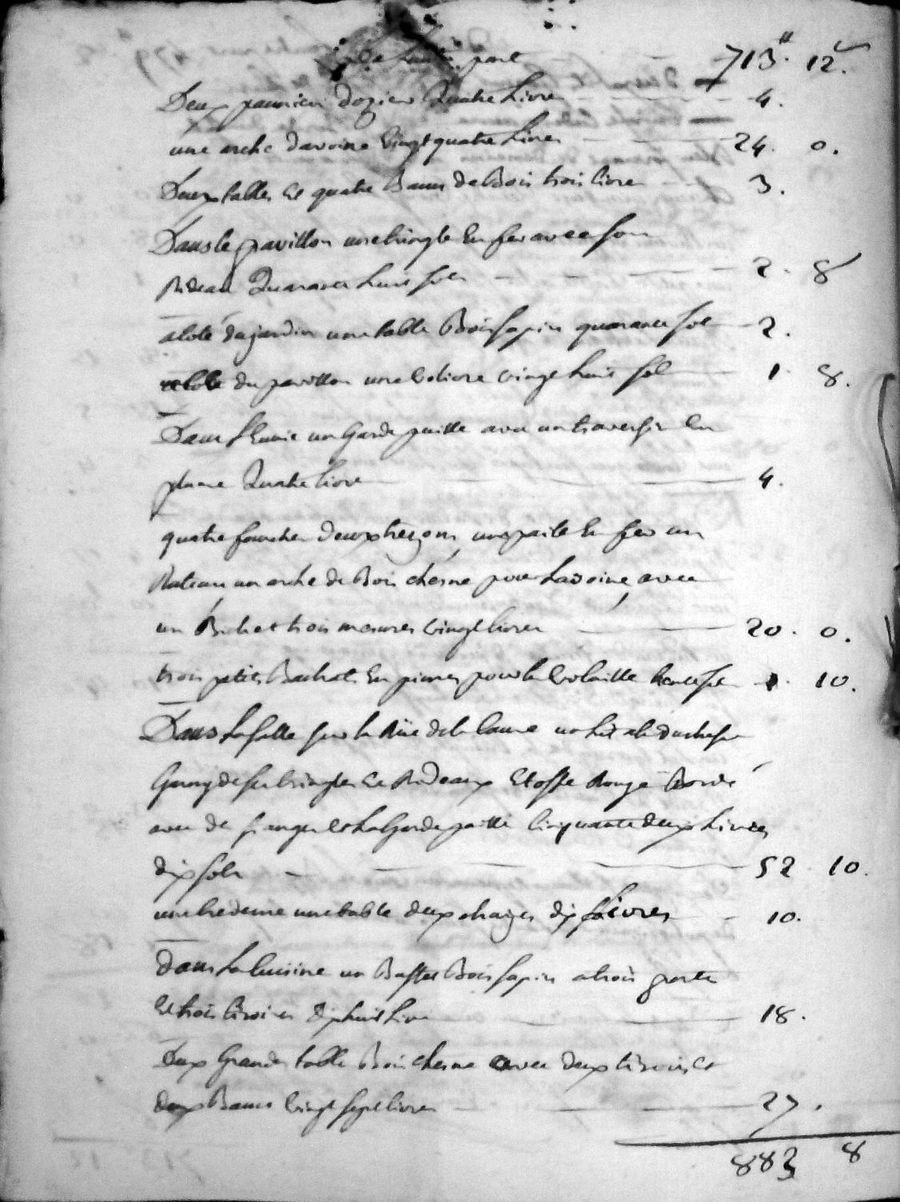 De l'autre part 713# 12s
Deux panniers dozier Quatre Livres 4.
une arche davoine Vingt quatre Livres 24. 0.
Deux tables et quatre Bancs de Bois trois Livres 3.
Dans le pavillon une tringle En fer avec son
Rideau Quarante huit sols 2. 8
a Coté du jardin une table Bois sapin quarante sols 2.
a Coté du pavillon une Voliere vingt huit sols 1. 8.
Dans un Garde paille avec un traversin En
plume Quatre Livres 4.
quatre fourches Deux une En fer un
Rateau un arche de Bois chesne pour Lavoine avec
un Bichet trois mesures Vingt Livres 20. 0.
trois petits Bachats En pierres pour la Volaille trente sols 1. 10.
Dans La salle sur la Rüe de la un Lit a la Duchesse
Garny de ses tringles et Rideaux Etoffe Rouge Bordé
avec des franges et La Garde paille Cinquante deux Livres
dix sols 52. 10.
une une table deux chaizes dix Livres 10.
dans La Cuisine un Buffet Bois sapin a trois portes
Et trois tiroirs dix huit Livres 18.
Deux Grandes tables Bois chesne avec deux tiroirs et
deux Bancs Vingt sept Livres 27.
883 8